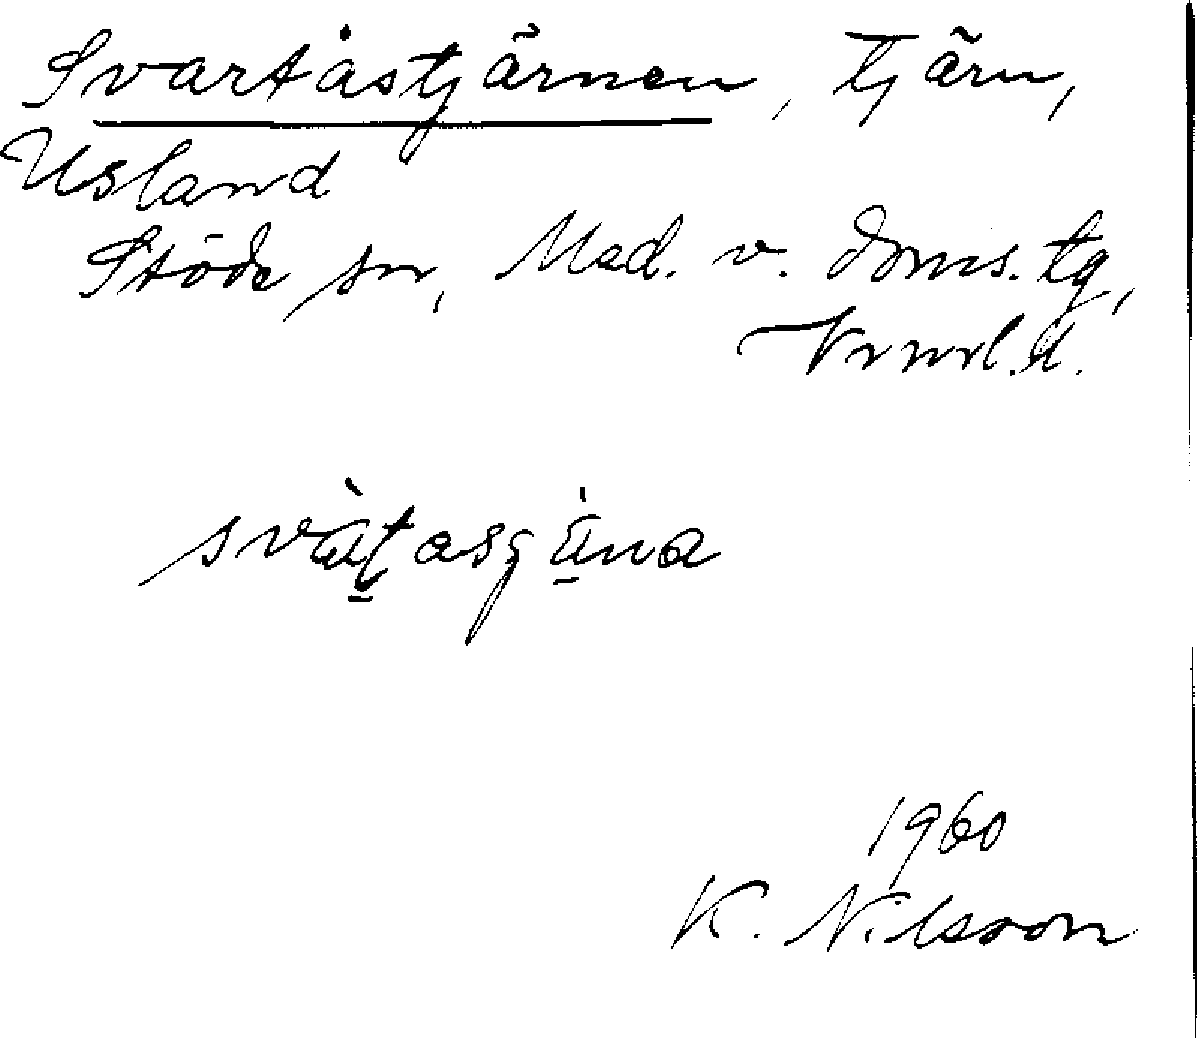 Svartåstjärnen, tjärn,
Usland
Stöde sn, Med. v. doms. tg,
Vrnrl. l.
svàt̲asgä̲na
1960
K. Nilsson